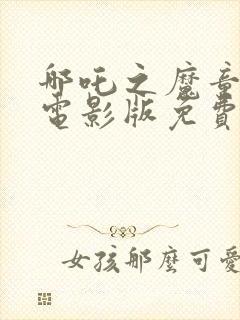 哪吒之魔童
電影版免費
女孩那麼可愛